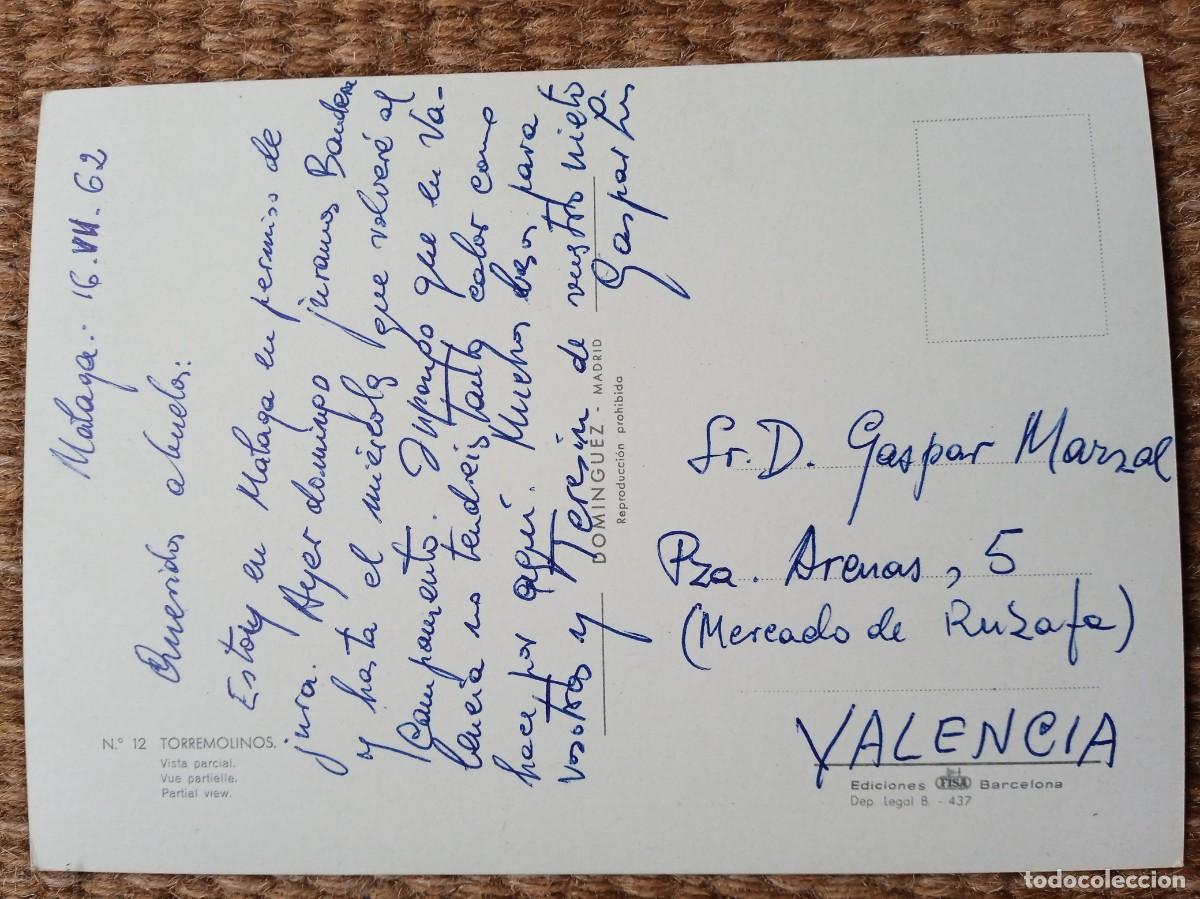 Malaga. 16. VII. 62
Queridos abuelos:
Estoy en Malaga en permiso de
jura. Ayer domingo juramos Bandera
y hasta el miércoles que volveré al
Campamento. Supongo que en Va-
lencia no tendreis tanto calor como
hace por aquí. Muchos besos para
vosotros y Teresín de vuestro nieto
Gaspar Luis
Nº 12 TORREMOLINOS.
Vista parcial.
Vue partielle.
Partial view.
DOMINGUEZ - MADRID
Reproducción prohibida
Sr. D. Gaspar Marzal
Pza. Arenas, 5
(Mercado de Ruzafa)
VALENCIA
Ediciones FISA Barcelona
Dep. Legal B. - 437
todocoleccion